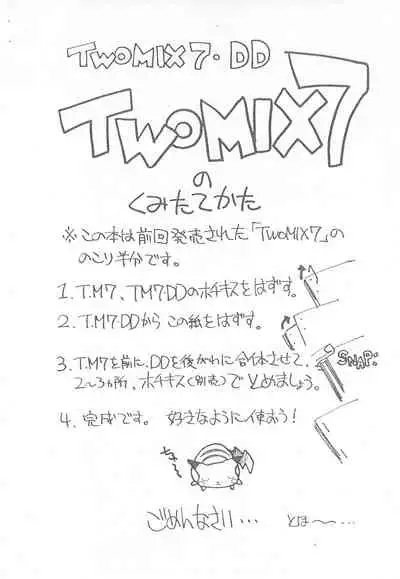 TWOMIX7・DD
TWOMIX7
の
くみたてかた
※この本は前回発売された「TWOMIX7」の
のこり半分です。
1. T.M7、TM7・DDのホチキスをはずす。
2. T.M7・DDから この紙をはずす。
3. T.M7を前に、DDを後がわに合体させて、
SNAP!
2〜3ヵ所、ホチキス(別売)でとめましょう。
4. 完成です。 好きなように使おう!
ごめんなさい… とほ〜…